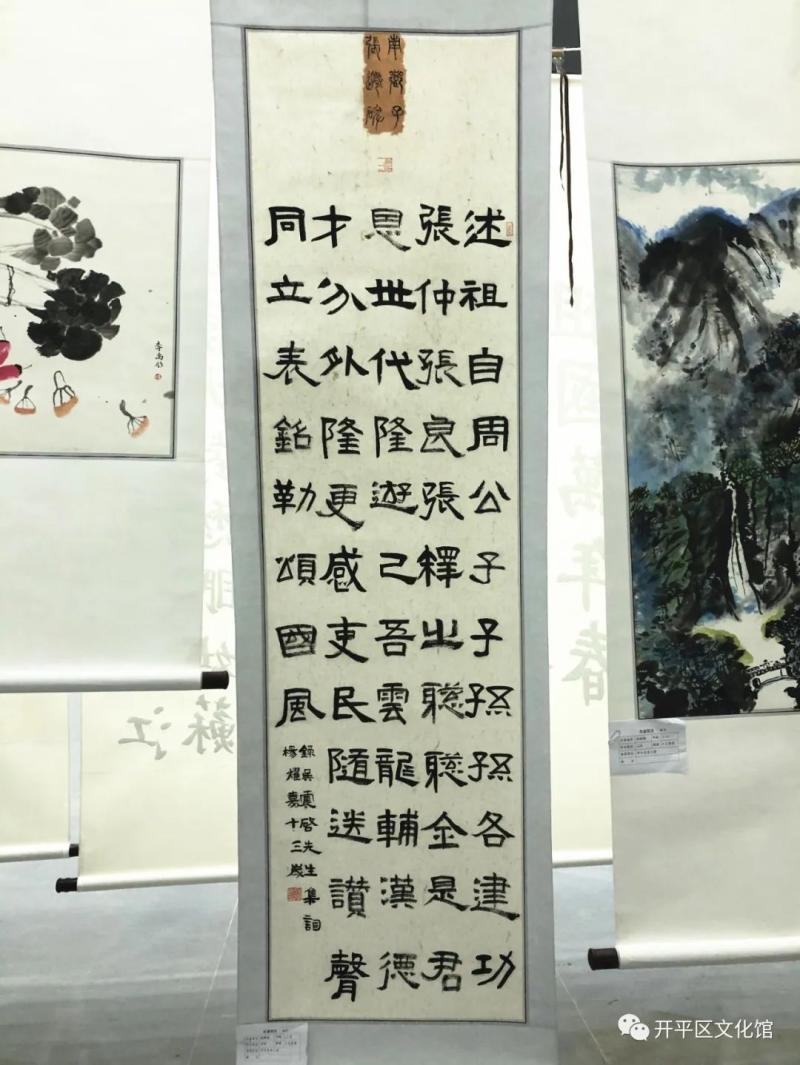 南鄉子
張遷碑
述祖自周公子子孫孫各建功
張仲張良張釋之聰聰金是君
恩世代隆遊己吾雲龍輔漢德
才分外隆更感吏民隨送讚聲
同立表銘勒頌國風
錄吳震啓先生集詞
穆耀嘉十三歲
國萬年春
开平区文化馆